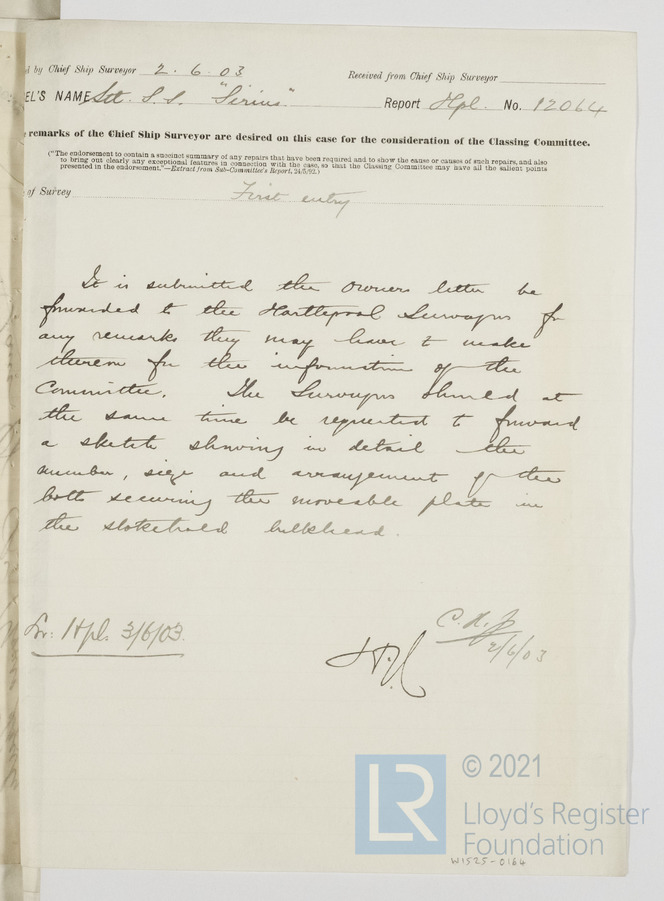 d by Chief Ship Surveyor 2. 6. 03 Received from Chief Ship Surveyor
EL'S NAME Stl. S.S. "Sirius" Report Hpl. No. 12064
remarks of the Chief Ship Surveyor are desired on this case for the consideration of the Classing Committee.
("The endorsement to contain a succinct summary of any repairs that have been required and to show the cause or causes of such repairs, and also
to bring out clearly any exceptional features in connection with the case, so that the Classing Committee may have all the salient points
presented in the endorsement."—Extract from Sub-Committee's Report, 24/5/92.)
of Survey First entry
It is submitted the Owners letter be
forwarded to the Hartlepool Surveyors for
any remarks they may have to make
thereon for the information of the
Committee. The Surveyors should at
the same time be requested to forward
a sketch showing in detail the
number, size and arrangement of the
bolts securing the moveable plate in
the stokehold bulkhead.
Lr: Hpl. 3/6/03.
2/6/03
LR
© 2021
Lloyd's Register
Foundation
W1525-0164